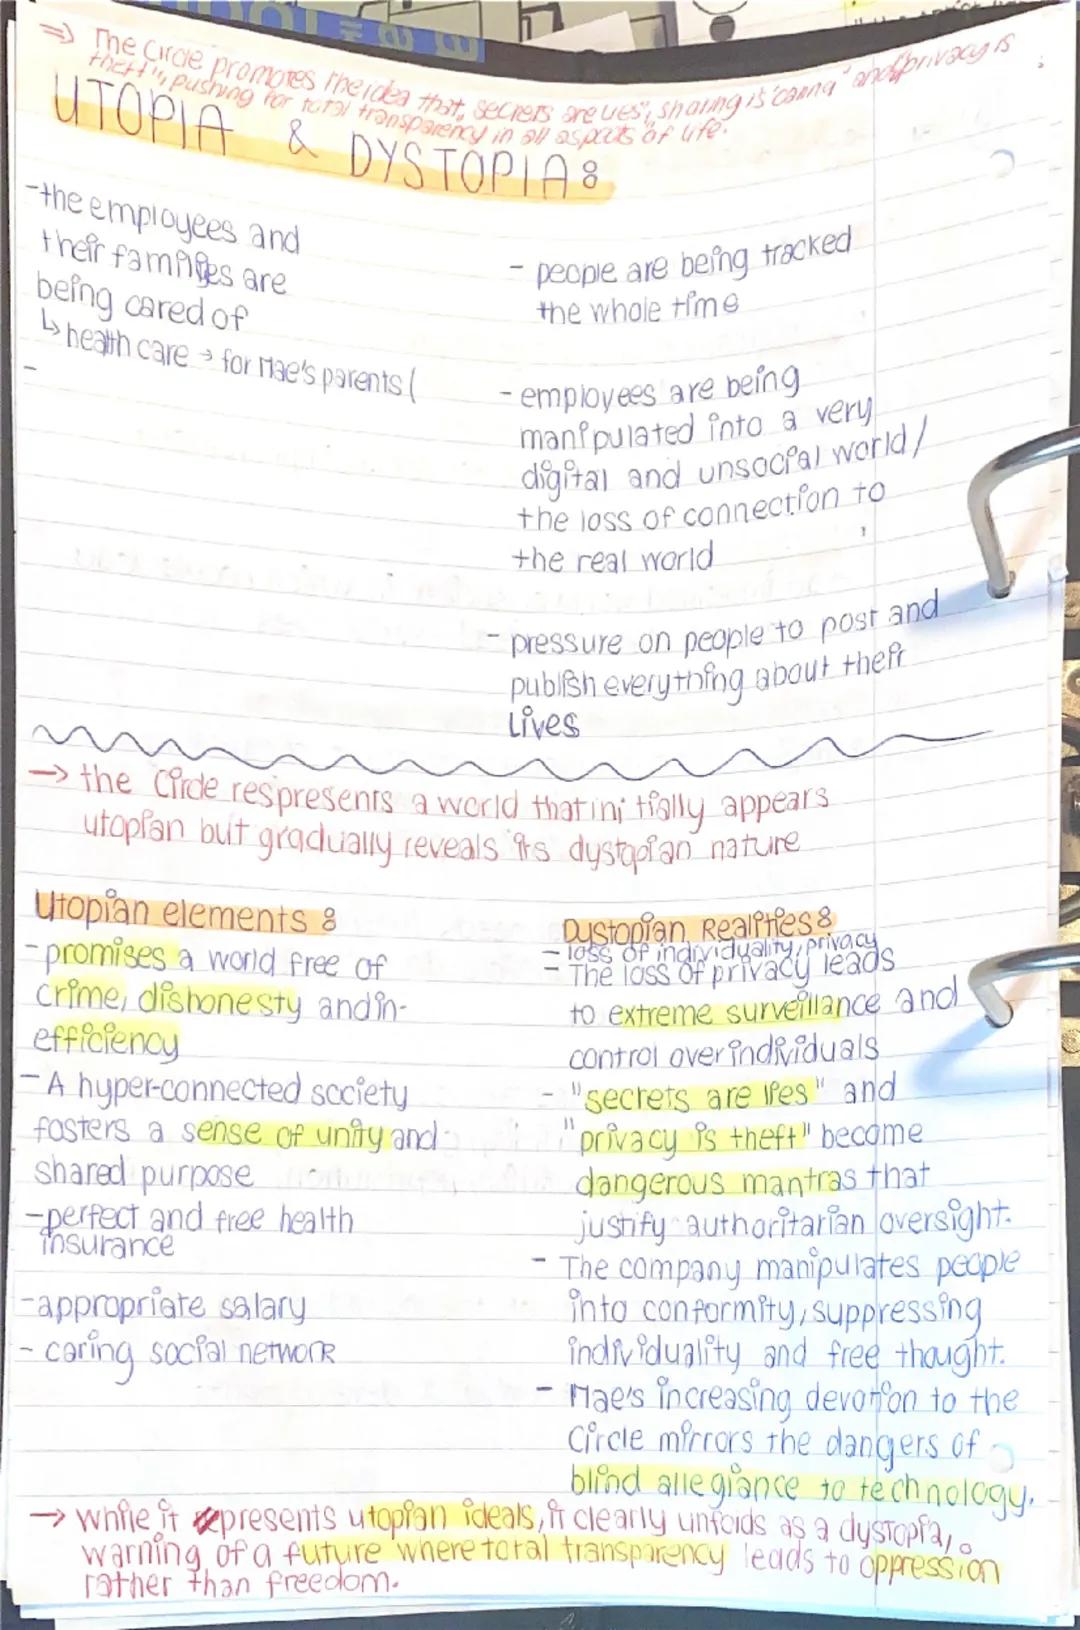 ⇒ The Circle promotes the idea that, "secrets are lies", sharing is 'caring' and "privacy is
theft", pushing for total transparency in all aspects of life.
UTOPIA & DYSTOPIA:
-the employees and
their families are
being cared of
↳ health care → for Mae's parents (
-
- people are being tracked
the whole time
- employees are being
manipulated into a very
digital and unsocial world/
the loss of connection to
the real world
- pressure on people to post and
publish everything about their
Lives
→ the Circle respresents a world that initially appears
utopian but gradually reveals its dystopian nature
Utopian elements:
- promises a world free of
crime, dishonesty and in-
efficiency
- A hyper-connected society
fosters a sense of unity and
shared purpose
-perfect and free health
insurance
-appropriate salary
- caring social network
Dystopian Realities:
- loss of individuality, privacy
- The loss of privacy leads
to extreme surveillance and
control over individuals
- "secrets are lies" and
"privacy is theft" become
dangerous mantras that
justify authoritarian oversight.
- The company manipulates people
into conformity, suppressing
individuality and free thought.
- Mae's increasing devotion to the
Circle mirrors the dangers of
blind allegiance to technology.
→ While it presents utopian ideals, it clearly unfolds as a dystopia,
warning of a future where total transparency leads to oppression
rather than freedom.